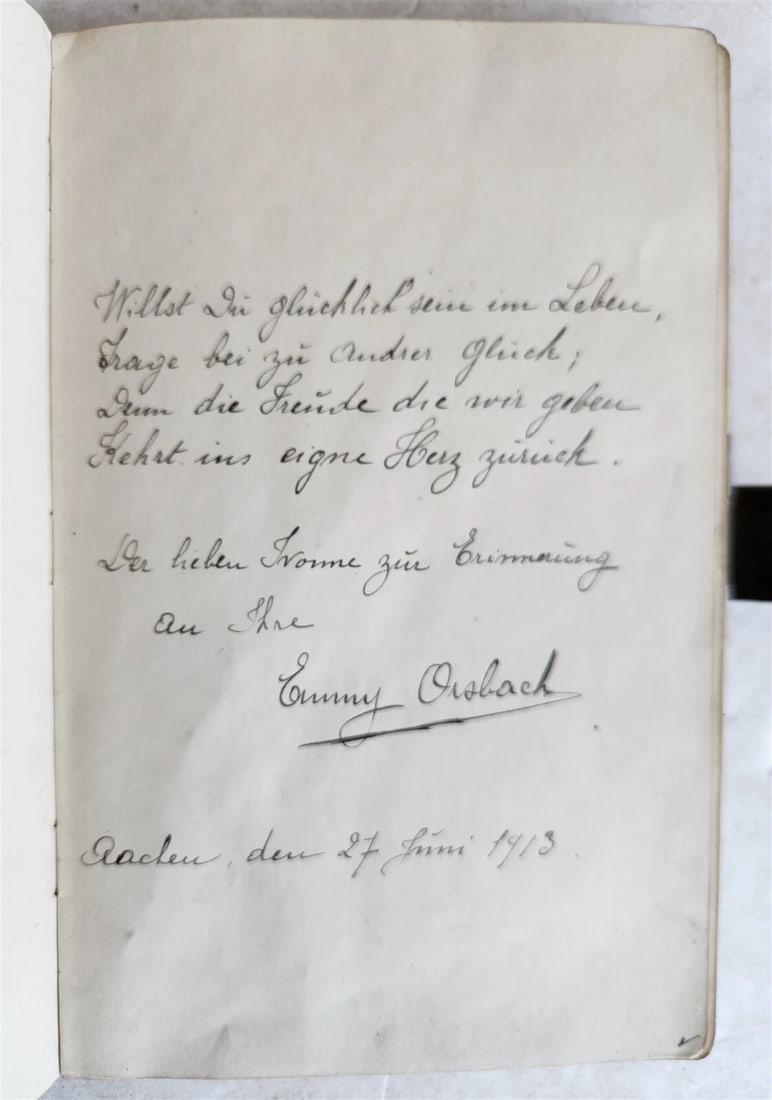 Willst Du glücklich sein im Leben,
Trage bei zu Andrer Glück;
Denn die Freude die wir geben
Kehrt ins eigne Herz zurück.
Der lieben Ivonne zur Erinnerung
an Ihre
Emmy Orsbach
Aachen, den 27 Juni 1913.